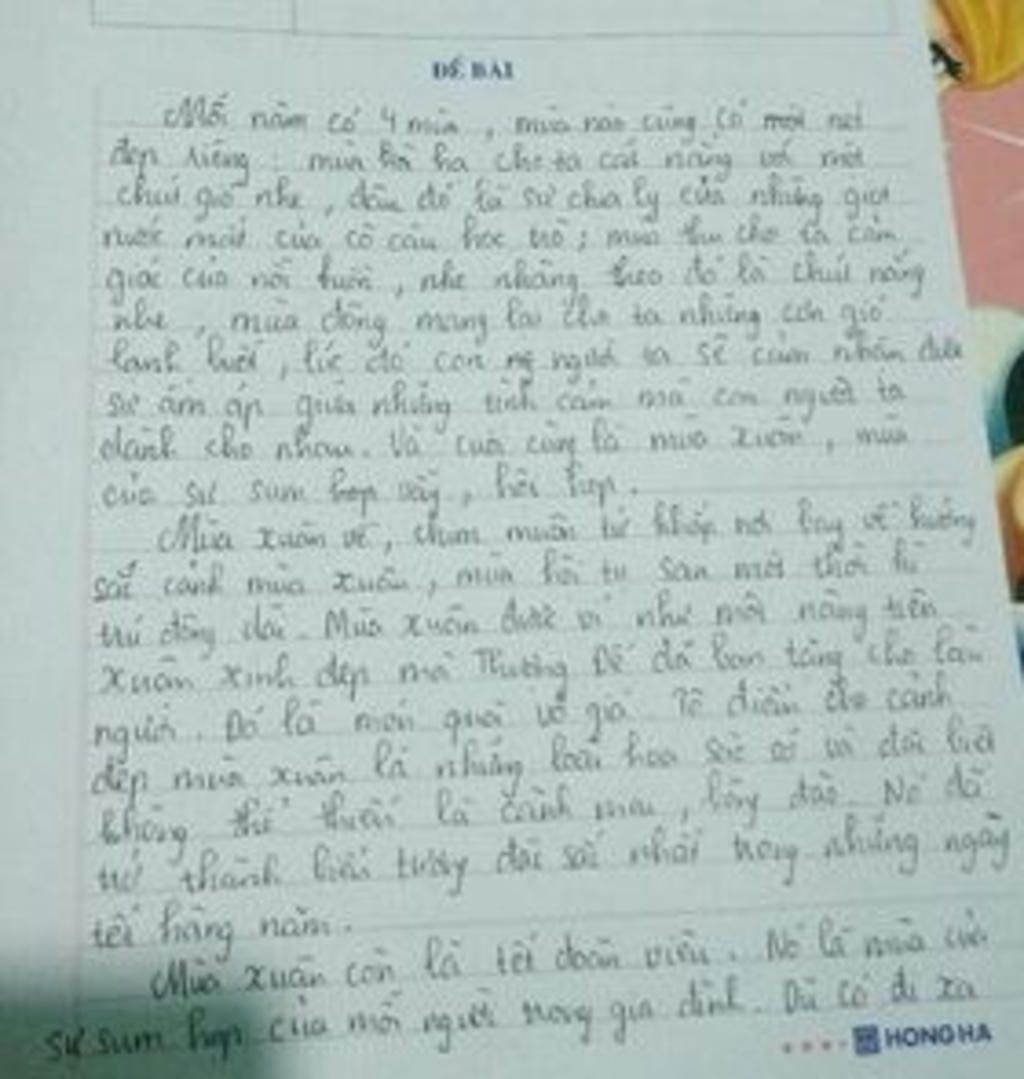 ĐỀ BÀI
Mỗi năm có 4 mùa, mùa nào cũng có một nét
đẹp riêng: mùa hạ cho ta cái nắng với một
chút gió nhẹ, đâu đó là sự chia ly của những giọt
nước mắt của cô cậu học trò; mùa thu cho ta cảm
giác của nỗi buồn, nhẹ nhàng theo đó là chút nắng
nhẹ, mùa đông mang lại cho ta những cơn gió
lạnh buốt, lúc đó con người ta sẽ cảm nhận được
sự ấm áp giữa những tình cảm mà con người ta
dành cho nhau. Và cuối cùng là mùa xuân, mùa
của sự sum họp vầy, hội họp.
Mùa xuân về, chim muôn từ khắp nơi bay về hưởng
sắc cảnh mùa xuân, mùa hội tụ sau một thời kì
trú đông dài. Mùa xuân được ví như một nàng tiên
xuân xinh đẹp mà Thượng Đế đã ban tặng cho loài
người. Đó là món quà vô giá. Tô điểm cho cảnh
đẹp mùa xuân là những loài hoa sặc sỡ và đặc biệt
không thể thiếu là cành mai, bông đào. Nó đã
trở thành biểu tượng đặc sắc nhất trong những ngày
tết hằng năm.
Mùa xuân còn là tết đoàn viên. Nó là mùa của
sự sum họp của mỗi người trong gia đình. Dù có đi xa
HONG HA